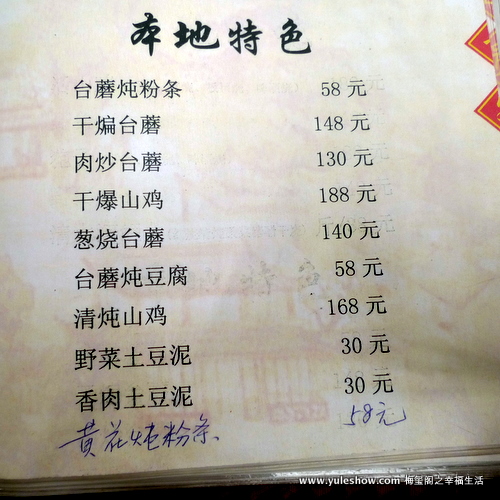 本地特色
台蘑炖粉条 58元
干煸台蘑 148元
肉炒台蘑 130元
干爆山鸡 188元
葱烧台蘑 140元
台蘑炖豆腐 58元
清炖山鸡 168元
野菜土豆泥 30元
香肉土豆泥 30元
黄花炖粉条 58元
www.yuleshow.com 梅玺阁之幸福生活